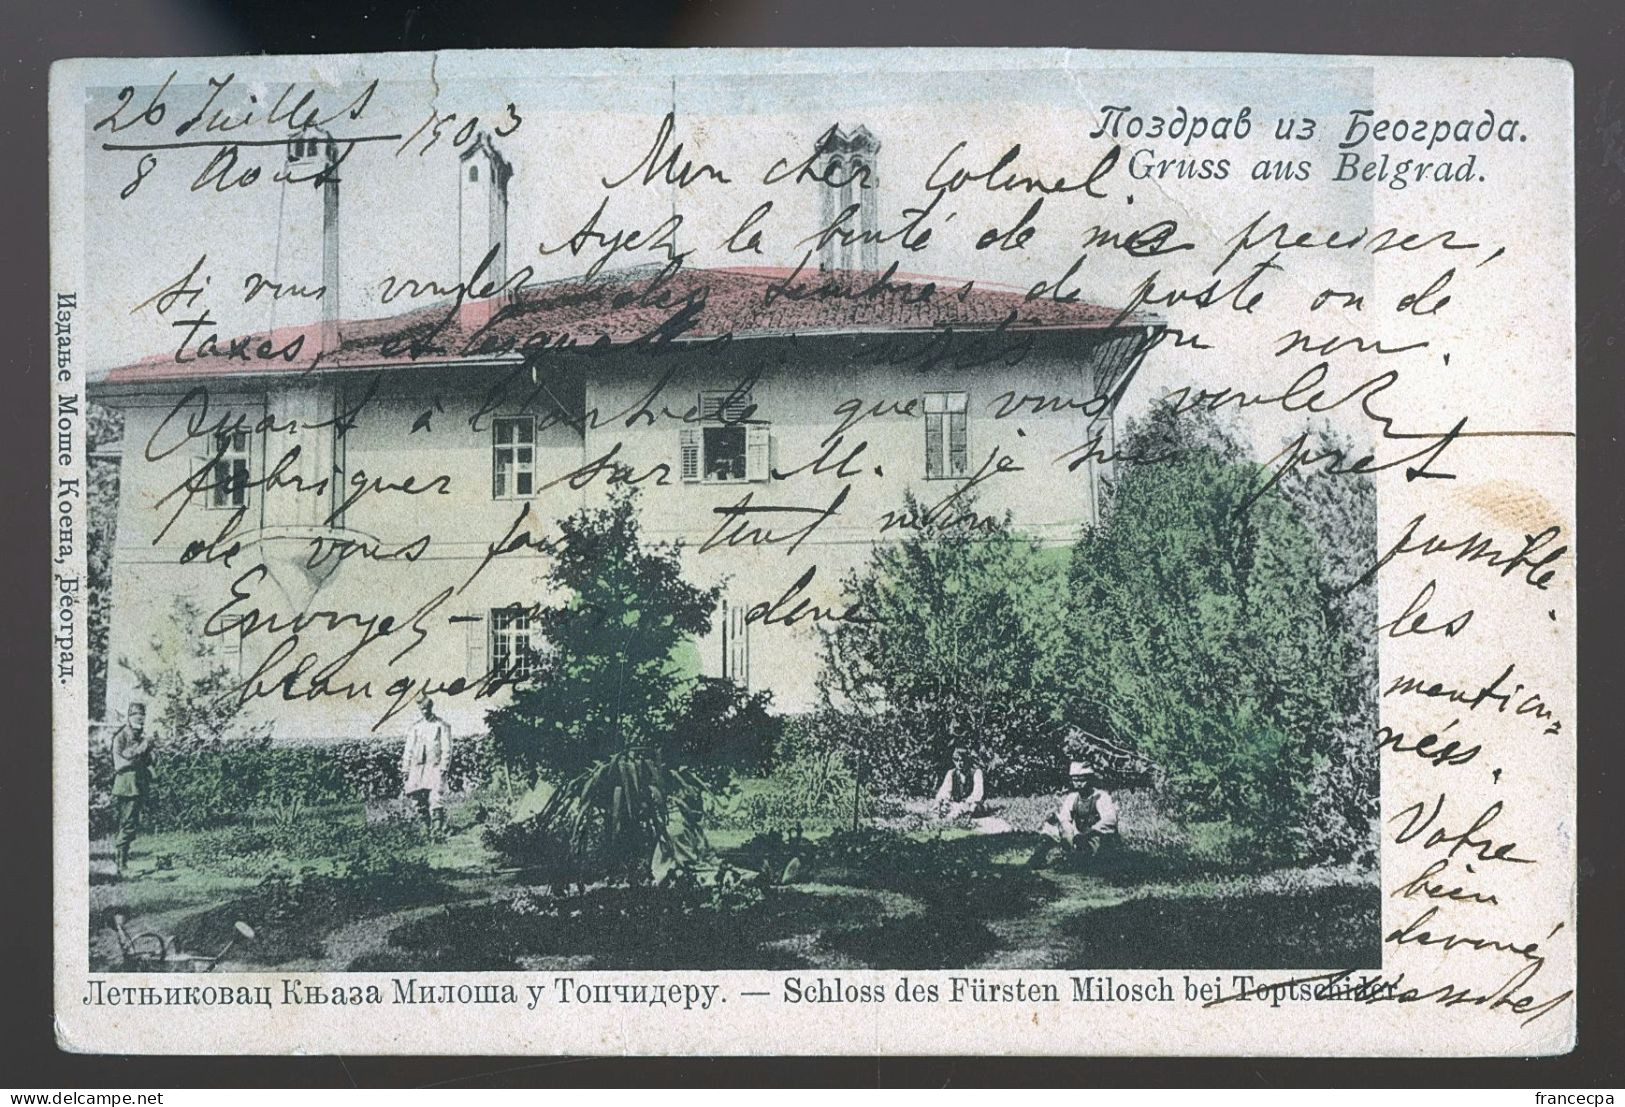 26 Juillet
8 Août 1903
Поздрав из Београда.
Gruss aus Belgrad.
Mon cher Colonel.
Ayez la bonté de me preciser,
si vous voulez des timbres de poste ou de
taxes, et lesquelles: usés ou non.
Quant à l'article que vous voulez
fabriquer sur M. je suis pret
de vous tout mon
possible.
Envoyez - donc
blanquette
les
mention=
nées.
Votre
bien
devoué
Издање Моше Коена, Београд.
Летњиковац Књаза Милоша у Топчидеру. — Schloss des Fürsten Milosch bei Toptschider.
francecpa
delcampe.net